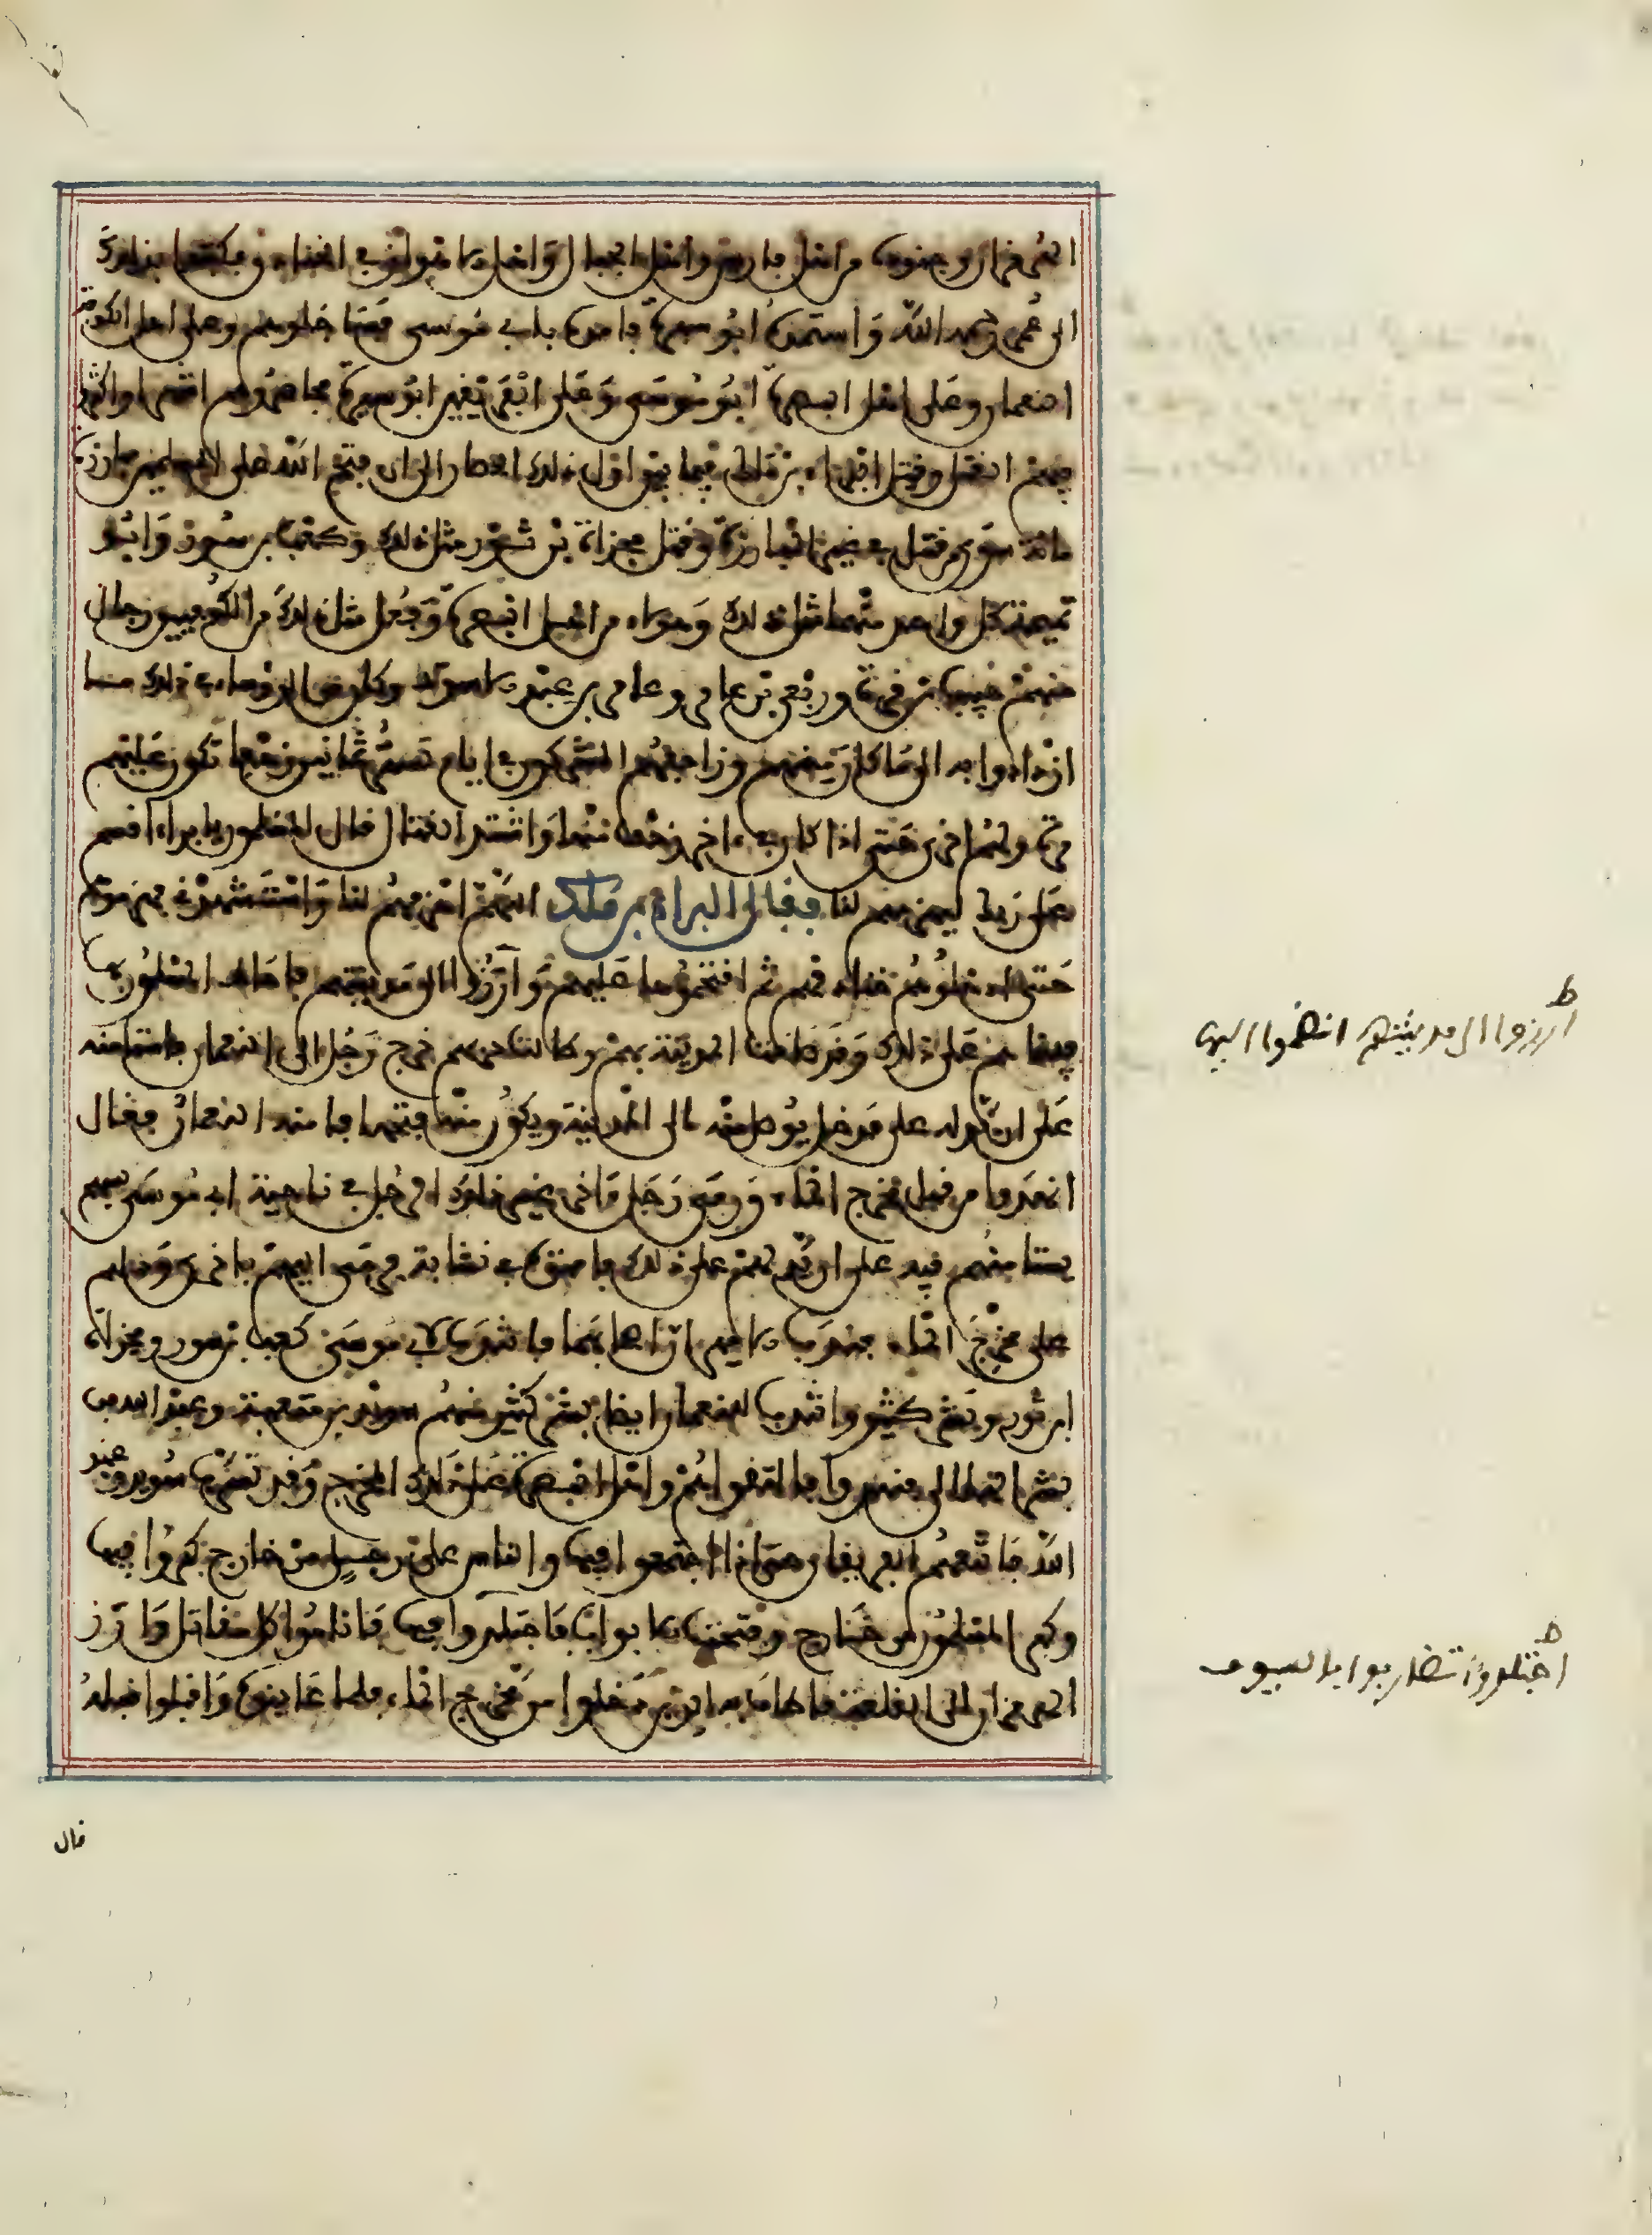 الهرمزان وجنوده من اهل فارس واهل الجبال والاهواز في الخنادق وكتبوا بذلك
الى عمر رحمه الله واستمده ابو سبرة فامده بابي موسى فسار نحوهم وعلى اهل الكوفة
النعمان وعلى اهل البصرة ابو موسى وعلى الفريقين ابو سبرة فحاصروهم اشهرا واكثروا
فيهم القتل وقتل البراء بن مالك فيما بين اول ذلك الحصار الى ان فتح الله على المسلمين مبارزة
مائة سوى من قتل في غير المبارزة وقتل مجزاة بن ثور مثل ذلك وكعب بن سور وابو
تميمة كل واحد منهما مثل ذلك وهولاء من اهل البصرة وفعل مثل ذلك من الكوفيين رجال
منهم حبيب بن قرة وربعي بن عامر وعامر بن عبد الاسود وكان من الرؤساء في ذلك ما
ازدادوا به الى ما كان منهم وزاحفهم المشركون في ايام تستر ثمانين زحفا تكون عليهم
مرة ولهم اخرى حتى اذا كان في ءاخر زحف منها واشتد القتال قال المسلمون يا براء اقسم
على ربك ليهزمهم لنا فقال البراء بن ملك اللهم اهزمهم لنا واستشهدني فهزموهم
حتى ادخلوهم خنادقهم ثم اقتحموها عليهم وارزوا الى مدينتهم فاحاط المسلمون بها
فبينما هم على ذلك وقد ضاقت المدينة بهم وطالت حربهم خرج رجل الى النعمان فاستامنه
على ان يدله على مدخل يوصل منه الى المدينة ويكون منه فتحها فامنه النعمان فقال
انهدوا من قبل مخرج الماء ورمى رجل ءاخر غير ذلك الرجل في ناحية ابي موسى بسهم
يستامنهم فيه على ان يدلهم على ذلك فامنوه في نشابة فرمى اليهم باخرى ودلهم
على مخرج الماء فندب الاميران اصحابهما فانتدب لابي موسى كعب بن سور ومجزاة
ابن ثور وبشر كثير وانتدب للنعمان ايضا بشر كثير منهم سويد بن المثعبة وعبد الله بن
بشر الهلالي فنهدوا فالتقوا هم واهل البصرة على ذلك المخرج وقد تسرب سويد وعبد
الله فاتبعهم الفريقان حتى اذا اجتمعوا فيها والناس على رجل من خارج كبروا فيها
وكبر المسلمون من خارج وفتحت الابواب فاجتلدوا فيها فاناموا كل مقاتل وارز
الهرمزان الى القلعة فاطاف به الذين دخلوا من مخرج الماء فلما عاينوه واقبلوا قبله
ط
ارزوا الى مدينتهم انضموا اليها
ط
اجتلدوا تضاربوا بالسيوف
قال